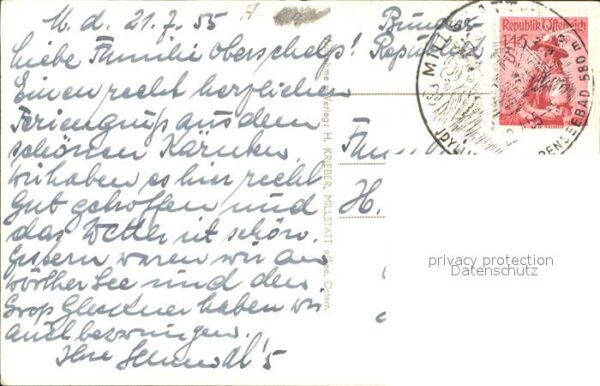 M. d. 21.7.55
Bundes
Republik
Liebe Familie Oberschelp!
Einen recht herzlichen
Feriengruß aus dem
schönen Kärnten
wir haben es hier recht
gut getroffen und
das Wetter ist schön.
Gestern waren wir am
Wörther See und den
Groß Glockner haben wir
auch bezwungen.
Ihre
Familie
H.
Verlag: H. KRIEBER, MILLSTATT a/See, Österr.
Republik Österreich
1.45
MILLSTATT
SEEBAD 580
privacy protection
Datenschutz